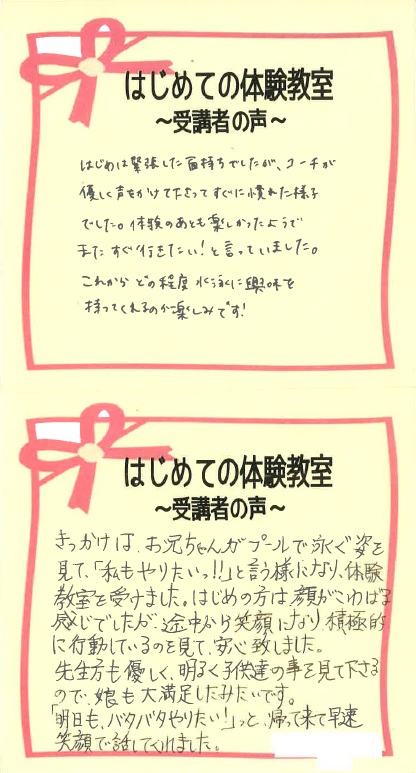 はじめての体験教室
～受講者の声～
はじめは緊張した面持ちでしたが、コーチが
優しく声をかけて下さってすぐに慣れた様子
でした。体験のあとも楽しかったようで
またすぐ行きたい！と言っていました。
これからどの程度水泳に興味を
持ってくれるのか楽しみです！
はじめての体験教室
～受講者の声～
きっかけは、お兄ちゃんがプールで泳ぐ姿を
見て、「私もやりたいっ!!」と言う様になり、体験
教室を受けました。はじめの方は顔がこわばる
感じでしたが、途中から笑顔になり、積極的
に行動しているのを見て、安心致しました。
先生方も優しく、明るく子供達の事を見て下さる
ので、娘も大満足したみたいです。
「明日も、バタバタやりたい！」っと、帰って来て早速
笑顔で話してくれました。